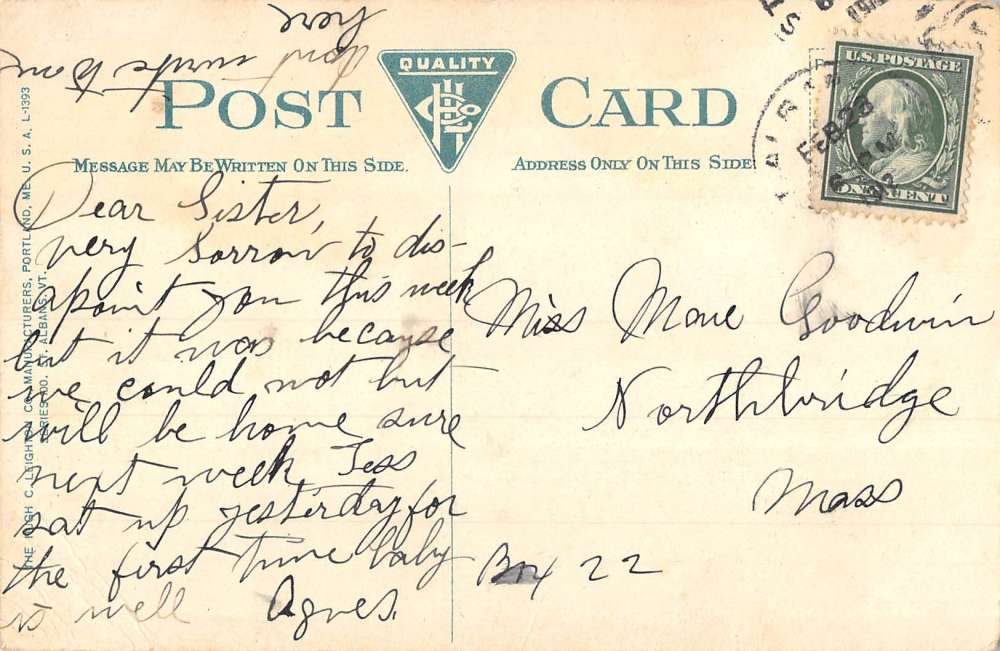 QUALITY
POST CARD
MESSAGE MAY BE WRITTEN ON THIS SIDE.
ADDRESS ONLY ON THIS SIDE
Dear Sister,
very sorrow to dis-
apoint you this week
but it was because
we could not but
will be home sure
next week Tess
sat up yesterday for
the first time baby
is well Agnes.
love
Miss Mae Goodwin
Northbridge
Mass
Box 22
U.S. POSTAGE
ONE CENT
FEB 23
THE HUGH C. LEIGHTON CO. MANUFACTURERS, PORTLAND, ME. U. S. A. L-1393
ST. ALBANS, VT.